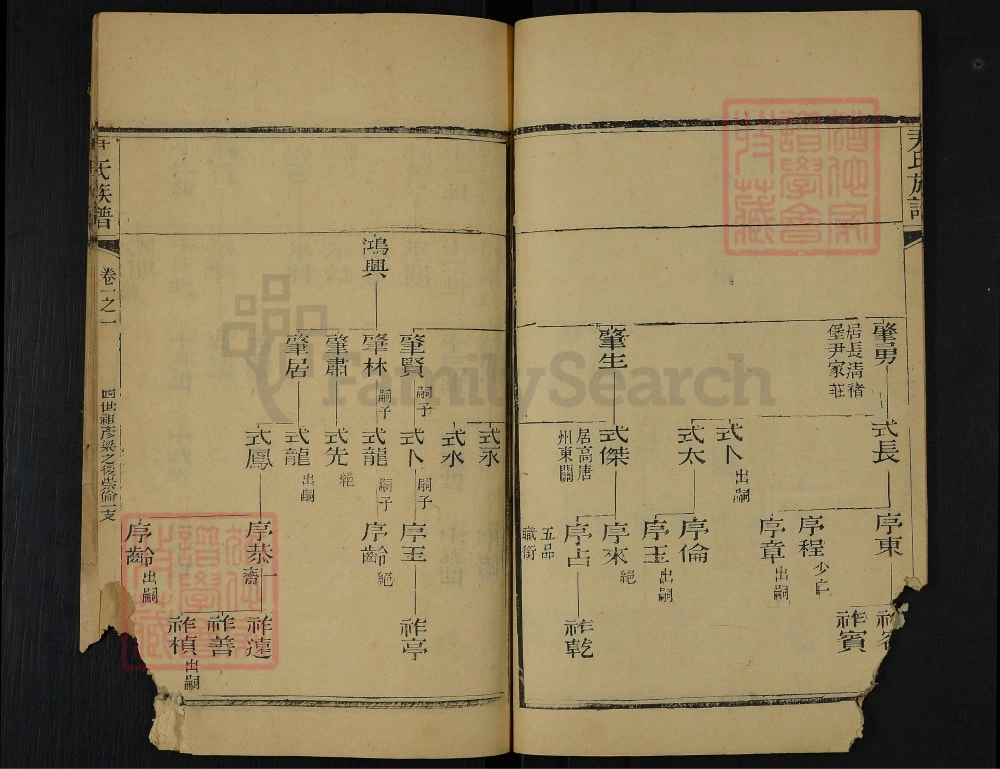 尹氏族譜
肇勇
居長清褚
堡尹家莊
肇生
式長
式卜
出嗣
式太
式傑
居高唐
州東關
序東
序程
序章
出嗣
序倫
序玉
出嗣
序來
絕
序占
五品
職銜
祚賓
祚乾
鴻興
肇賢
嗣子
肇林
嗣子
肇肅
肇居
式永
式水
式卜
嗣子
式龍
嗣子
式先
絕
式龍
出嗣
式鳳
序玉
序齡
絕
序恭
一齋
序齡
出嗣
祚亭
祚遠
祚善
祚楨
出嗣
氏族譜
卷一之一
四世祖彥梁之後崇倫一支
FamilySearch